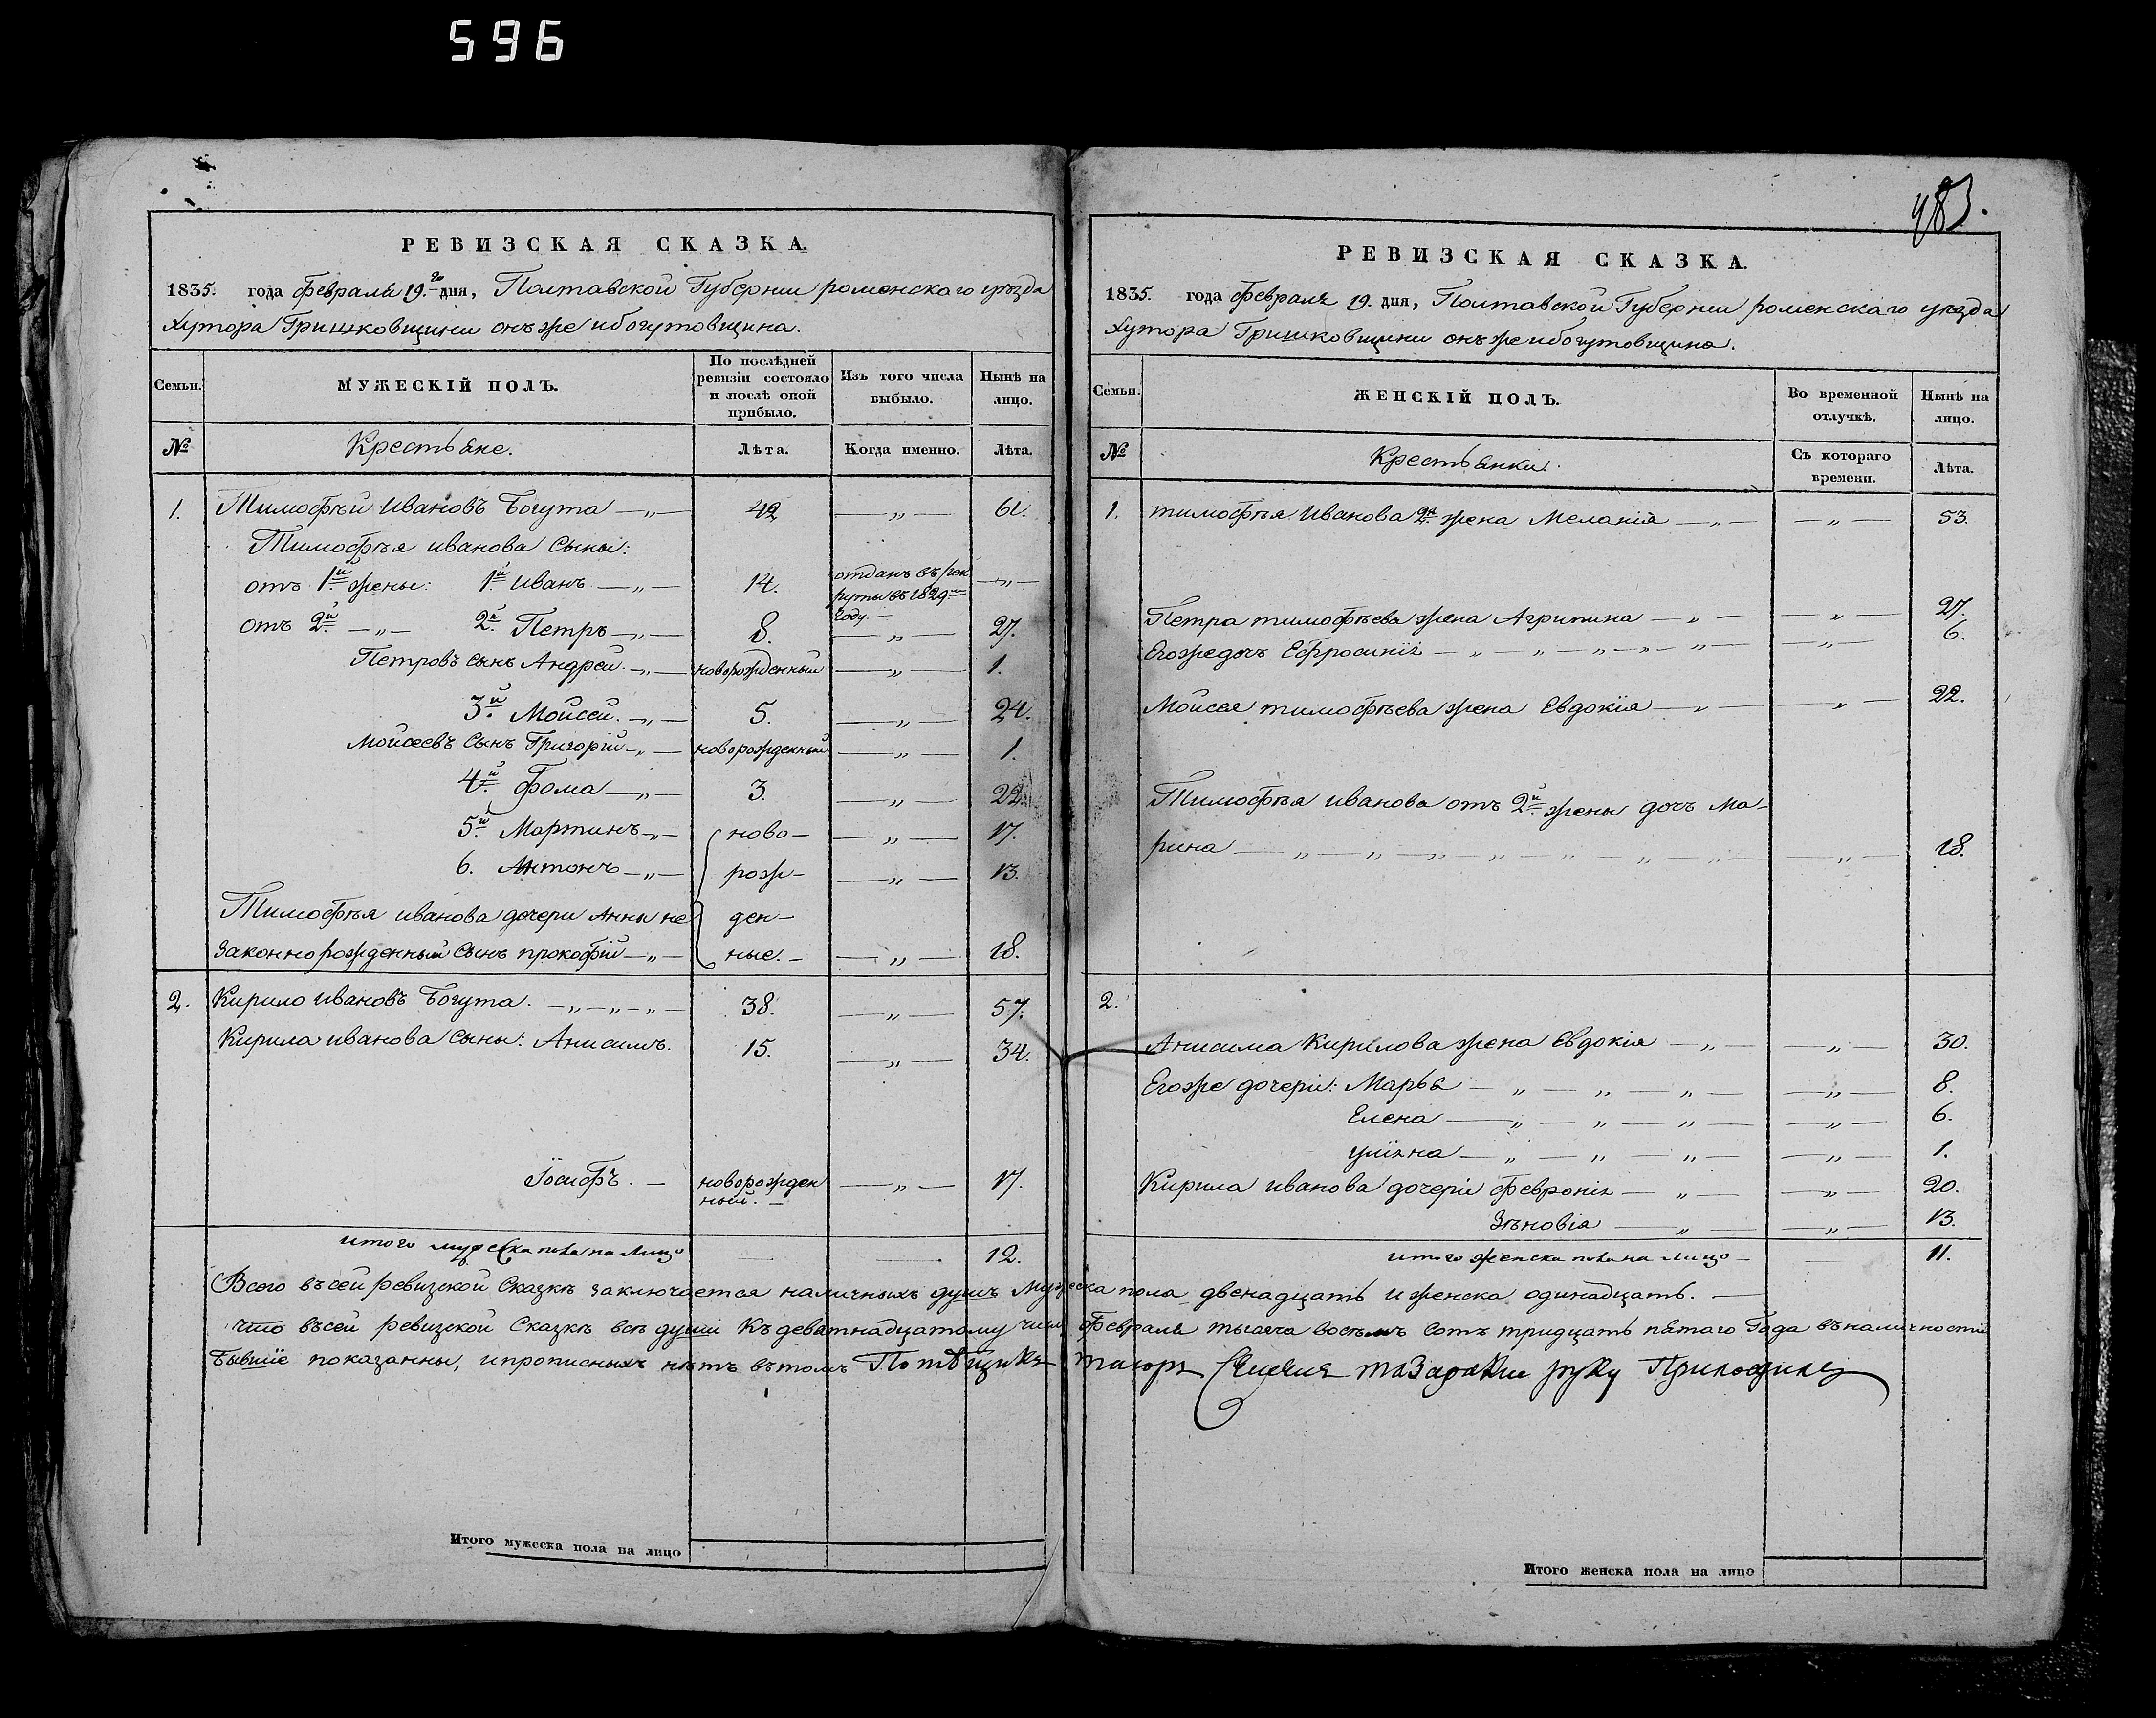 596
483.
РЕВИЗСКАЯ СКАЗКА.
1835. года Февраля 19.го дня, Полтавской Губернии роменского уезда
Хутора Гришковщини онъ же и богутовщина.
Семьи. МУЖЕСКІЙ ПОЛЪ. По послѣдней ревизіи состояло и послѣ оной прибыло. Изъ того числа выбыло. Нынѣ на лицо.
№ Крестьяне. Лѣта. Когда именно. Лѣта.
1. Тимофѣй Ивановъ Богута —„— 42 —„— 61.
Тимофѣя иванова Сыны:
отъ 1й жены: 1й Иванъ —„— 14. отданъ въ рек
руты въ 1829м —„—
году.—
отъ 2й —„— 2й Петръ —„— 8. —„— 27.
Петровъ сынъ Андрей. —„— новорожденный —„— 1.
3й Мойсей. —„— 5. —„— 24.
Мойсеевъ Сынъ Григорій —„— новорожденный —„— 1.
4й Фома —„— 3. —„— 22.
5й Мартинъ —„— ново— —„— 17.
6. Антонъ —„— рож— —„— 13.
Тимофѣя иванова дочери Анны не ден—
законнорожденный Сынъ прокофій —„— ные.— —„— 18.
2. Кирило Ивановъ Богута. —„—„—„— 38. —„— 57.
Кирила иванова Сыны: Анисимъ. 15. —„— 34.
Іосифъ. — новорожден —„— 17.
ный.—
итого мужеска пола на лицо 12.
РЕВИЗСКАЯ СКАЗКА.
1835. года Февраля 19. дня, Полтавской Губернии роменскаго уезда
Хутора Гришковщини онъ же и богутовщина.
Семьи. ЖЕНСКІЙ ПОЛЪ. Во временной отлучкѣ. Нынѣ на лицо.
№ Крестьянки. Съ котораго времени. Лѣта.
1. тимофѣя Иванова 2я жена Меланія —„— —„— 53.
Петра тимофѣева жена Агрипина —„— —„— 27.
Егожедочъ Ефросинія —„—„—„—„—„— —„— 6.
Мойсея тимофѣева жена Евдокія —„— —„— 22.
Тимофѣя иванова отъ 2й жены дочъ Ма-
рина —„—„—„—„—„—„—„— —„— 18.
2.
Анисима Кирилова жена Евдокія —„— —„— 30.
Егоже дочери: Марья —„—„—„— —„— 8.
Елена —„—„—„— —„— 6.
уліяна —„—„—„— —„— 1.
Кирила иванова дочери Февронія —„— —„— 20.
Зѣновія —„— —„— 13.
итого женска пола на лицо — 11.
Всего въ сей ревизской Сказкѣ заключается наличныхъ душъ Мужеска пола двенадцать и женска одинадцать. —
что въсей ревизской Сказкѣ всѣ души Къ девятнадцатому числу Февраля тысяча восемъ сотъ тридцать пятаго Года въ наличности
Бывшіе показанны, и прописныхъ нѣтъ въ томъ Помѣщикъ маіоръ руку Приложилъ
Итого мужеска пола на лицо
Итого женска пола на лицо